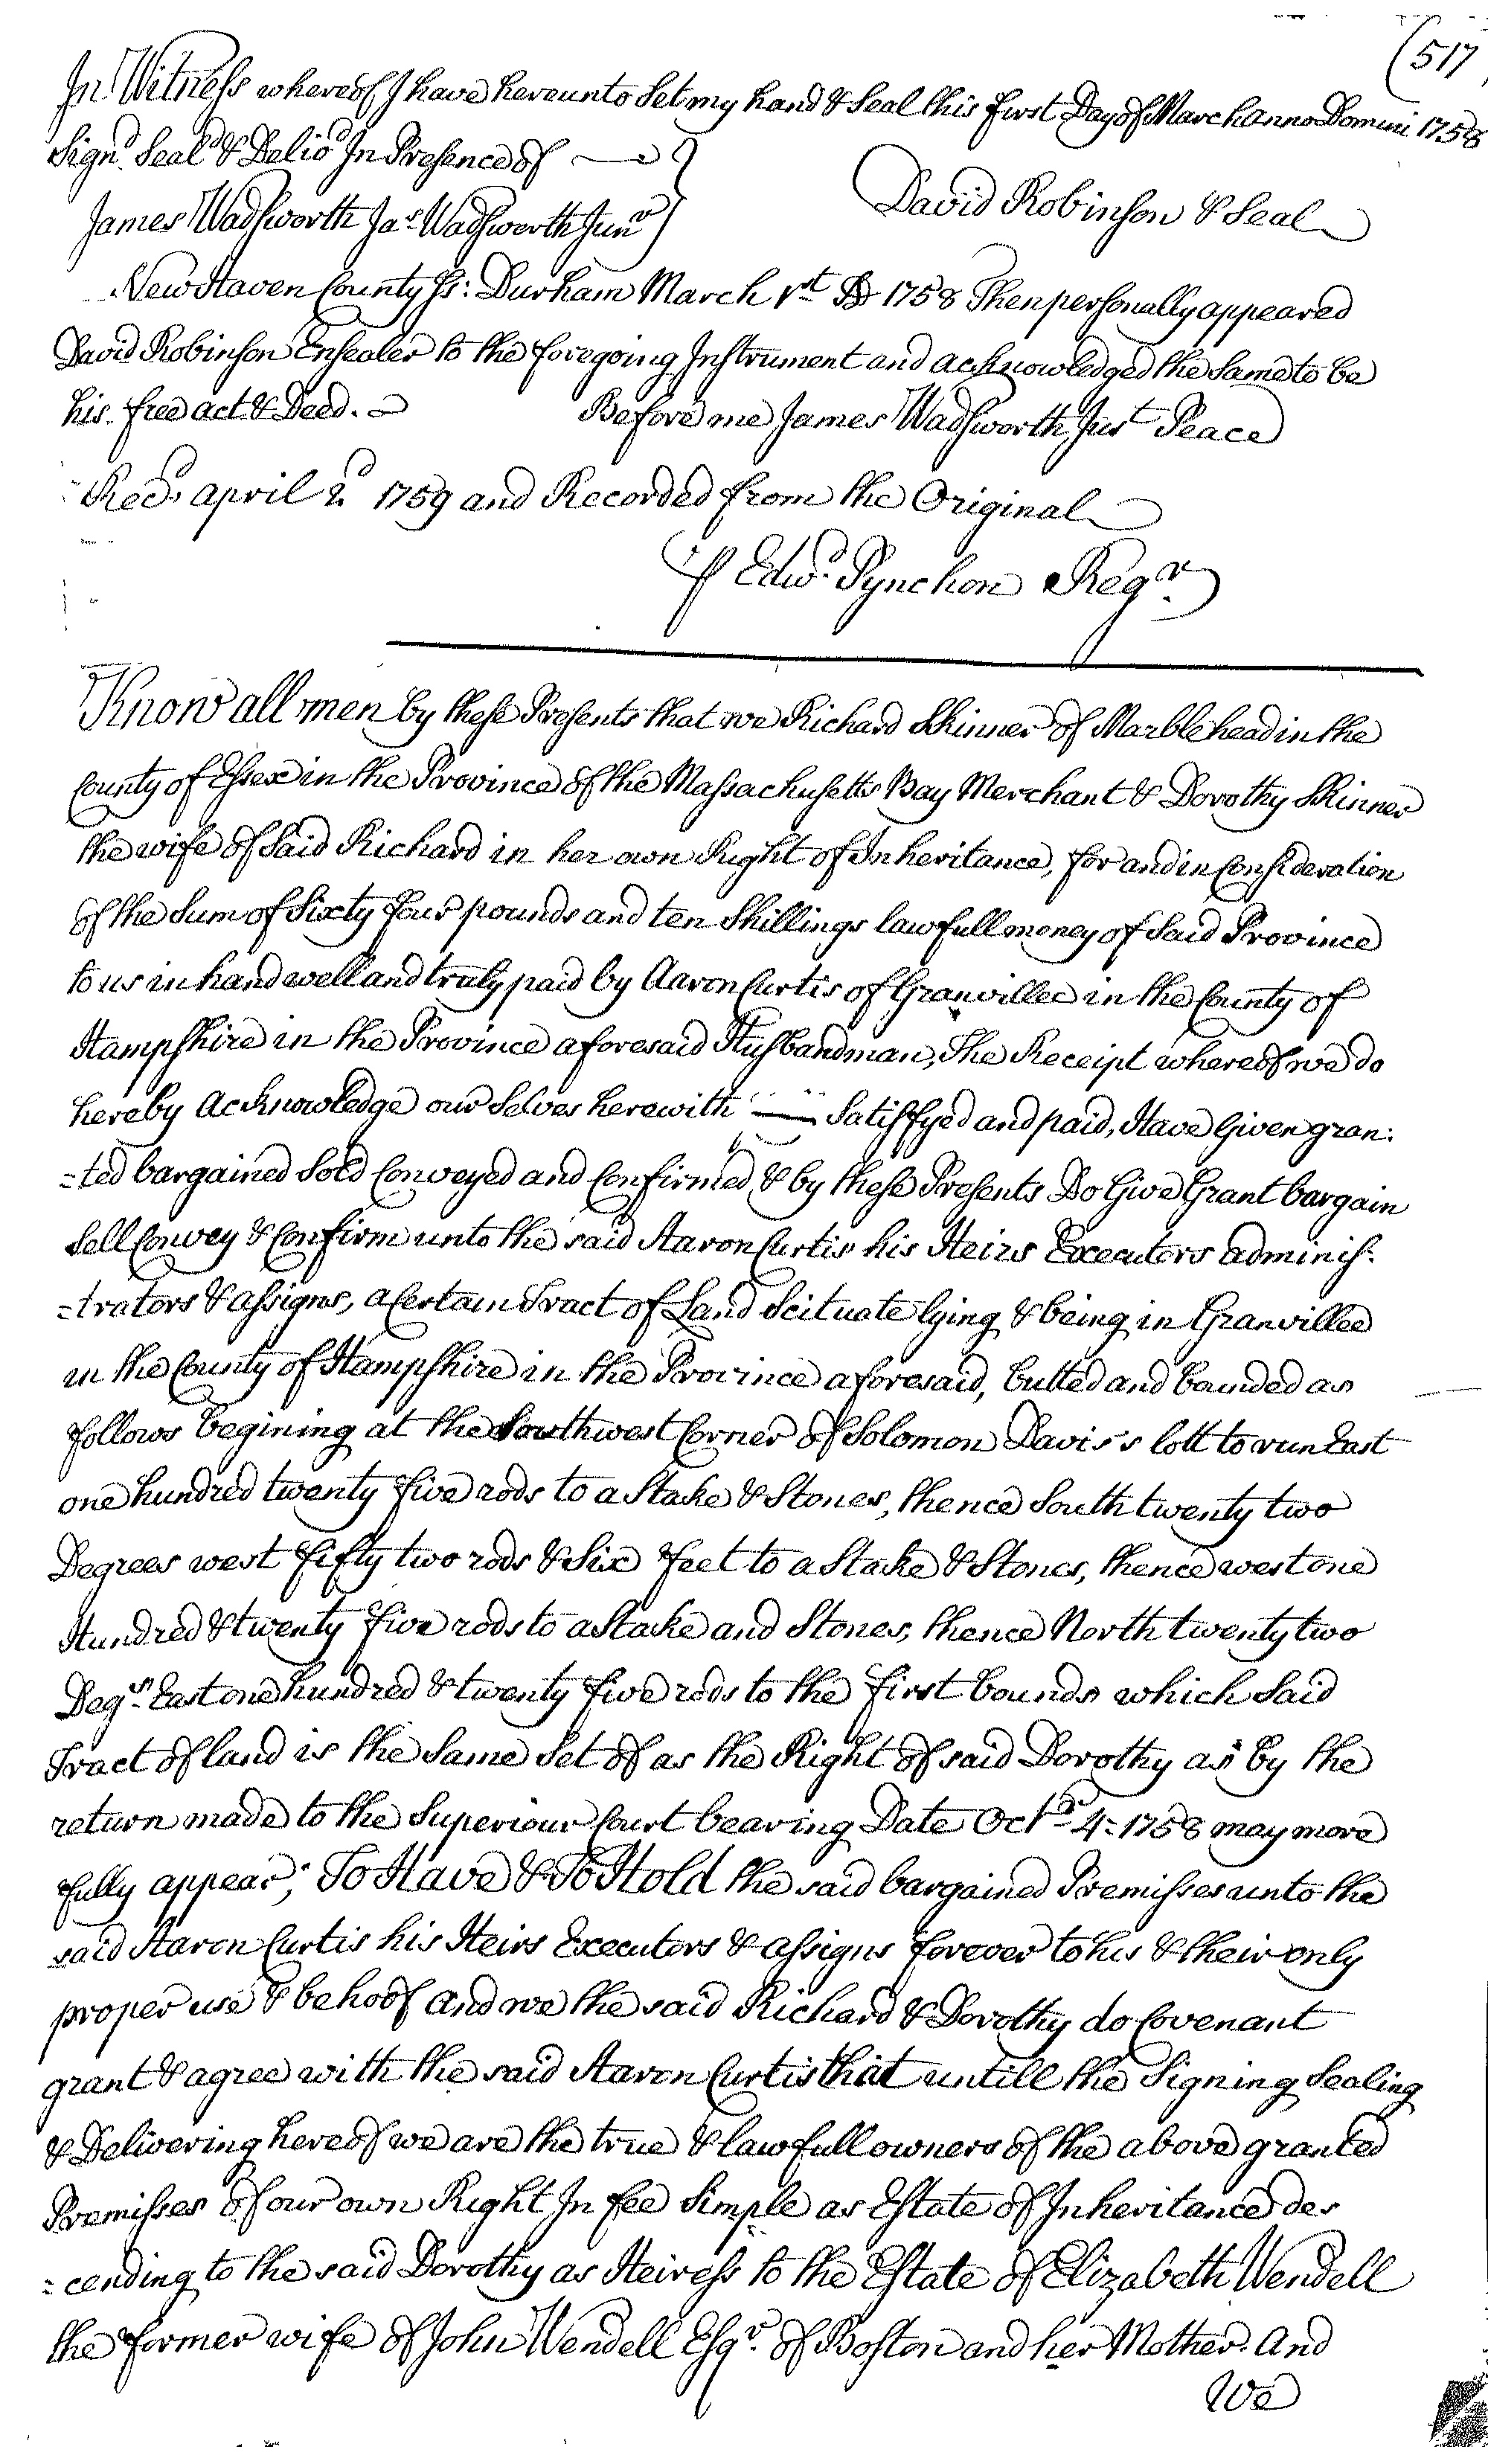 (517
In Witness whereof I have hereunto Set my hand & Seal this first Day of March anno Domini 1758
Sign'd Seal'd & Deliv'd In Presence of
James Wadsworth Jas Wadsworth Junr
David Robinson & Seal
New Haven County Ss: Durham March 1st AD 1758 Then personally appeared
David Robinson Ensealer to the foregoing Instrument and acknowledged the Same to be
his free act & Deed.
Before me James Wadsworth Just Peace
Recd april 2d 1759 and Recorded from the Original
P Edwd Pynchon Regr
Know all men by these Presents that we Richard Skinner of Marblehead in the
County of Essex in the Province of the Massachusetts Bay Merchant & Dorothy Skinner
the wife of Said Richard in her own Right of Inheritance, for and in Consideration
of the Sum of Sixty four pounds and ten Shillings lawfull money of Said Province
to us in hand well and truly paid by Aaron Curtis of Granvillee in the County of
Hampshire in the Province aforesaid Husbandman, The Receipt whereof we do
hereby Acknowledge our Selves herewith Satisfyed and paid, Have Given gran:
=ted bargained Sold Conveyed and Confirmed, & by these Presents Do Give Grant bargain
Sell Convey & Confirm unto the said Aaron Curtis his Heirs Executors adminis:
=trators & assigns, a Certain Tract of Land Scituate lying & being in Granvillee
in the County of Hampshire in the Province aforesaid, butted and bounded as
follows begining at the Southwest Corner of Solomon Davis's lott to run East
one hundred twenty five rods to a Stake & Stones, thence South twenty two
Degrees west fifty two rods & Six feet to a Stake & Stones, thence west one
Hundred & twenty five rods to a Stake and Stones, thence North twenty two
Degrs East one hundred & twenty five rods to the first bounds which Said
Tract of land is the Same Set of as the Right of said Dorothy as by the
return made to the Superiour Court bearing Date Octr 4: 1758 may more
fully appear; To Have & To Hold the said bargained Premisses unto the
said Aaron Curtis his Heirs Executors & assigns forever to his & their only
proper use & behoof and we the said Richard & Dorothy do Covenant
grant & agree with the said Aaron Curtis that untill the Signing Sealing
& Delivering hereof we are the true & lawfull owners of the above granted
Premisses of our own Right In fee Simple as Estate of Inheritance des
=cending to the said Dorothy as Heiress to the Estate of Elizabeth Wendell
the former wife of John Wendell Esqr of Boston and her Mother. And
We